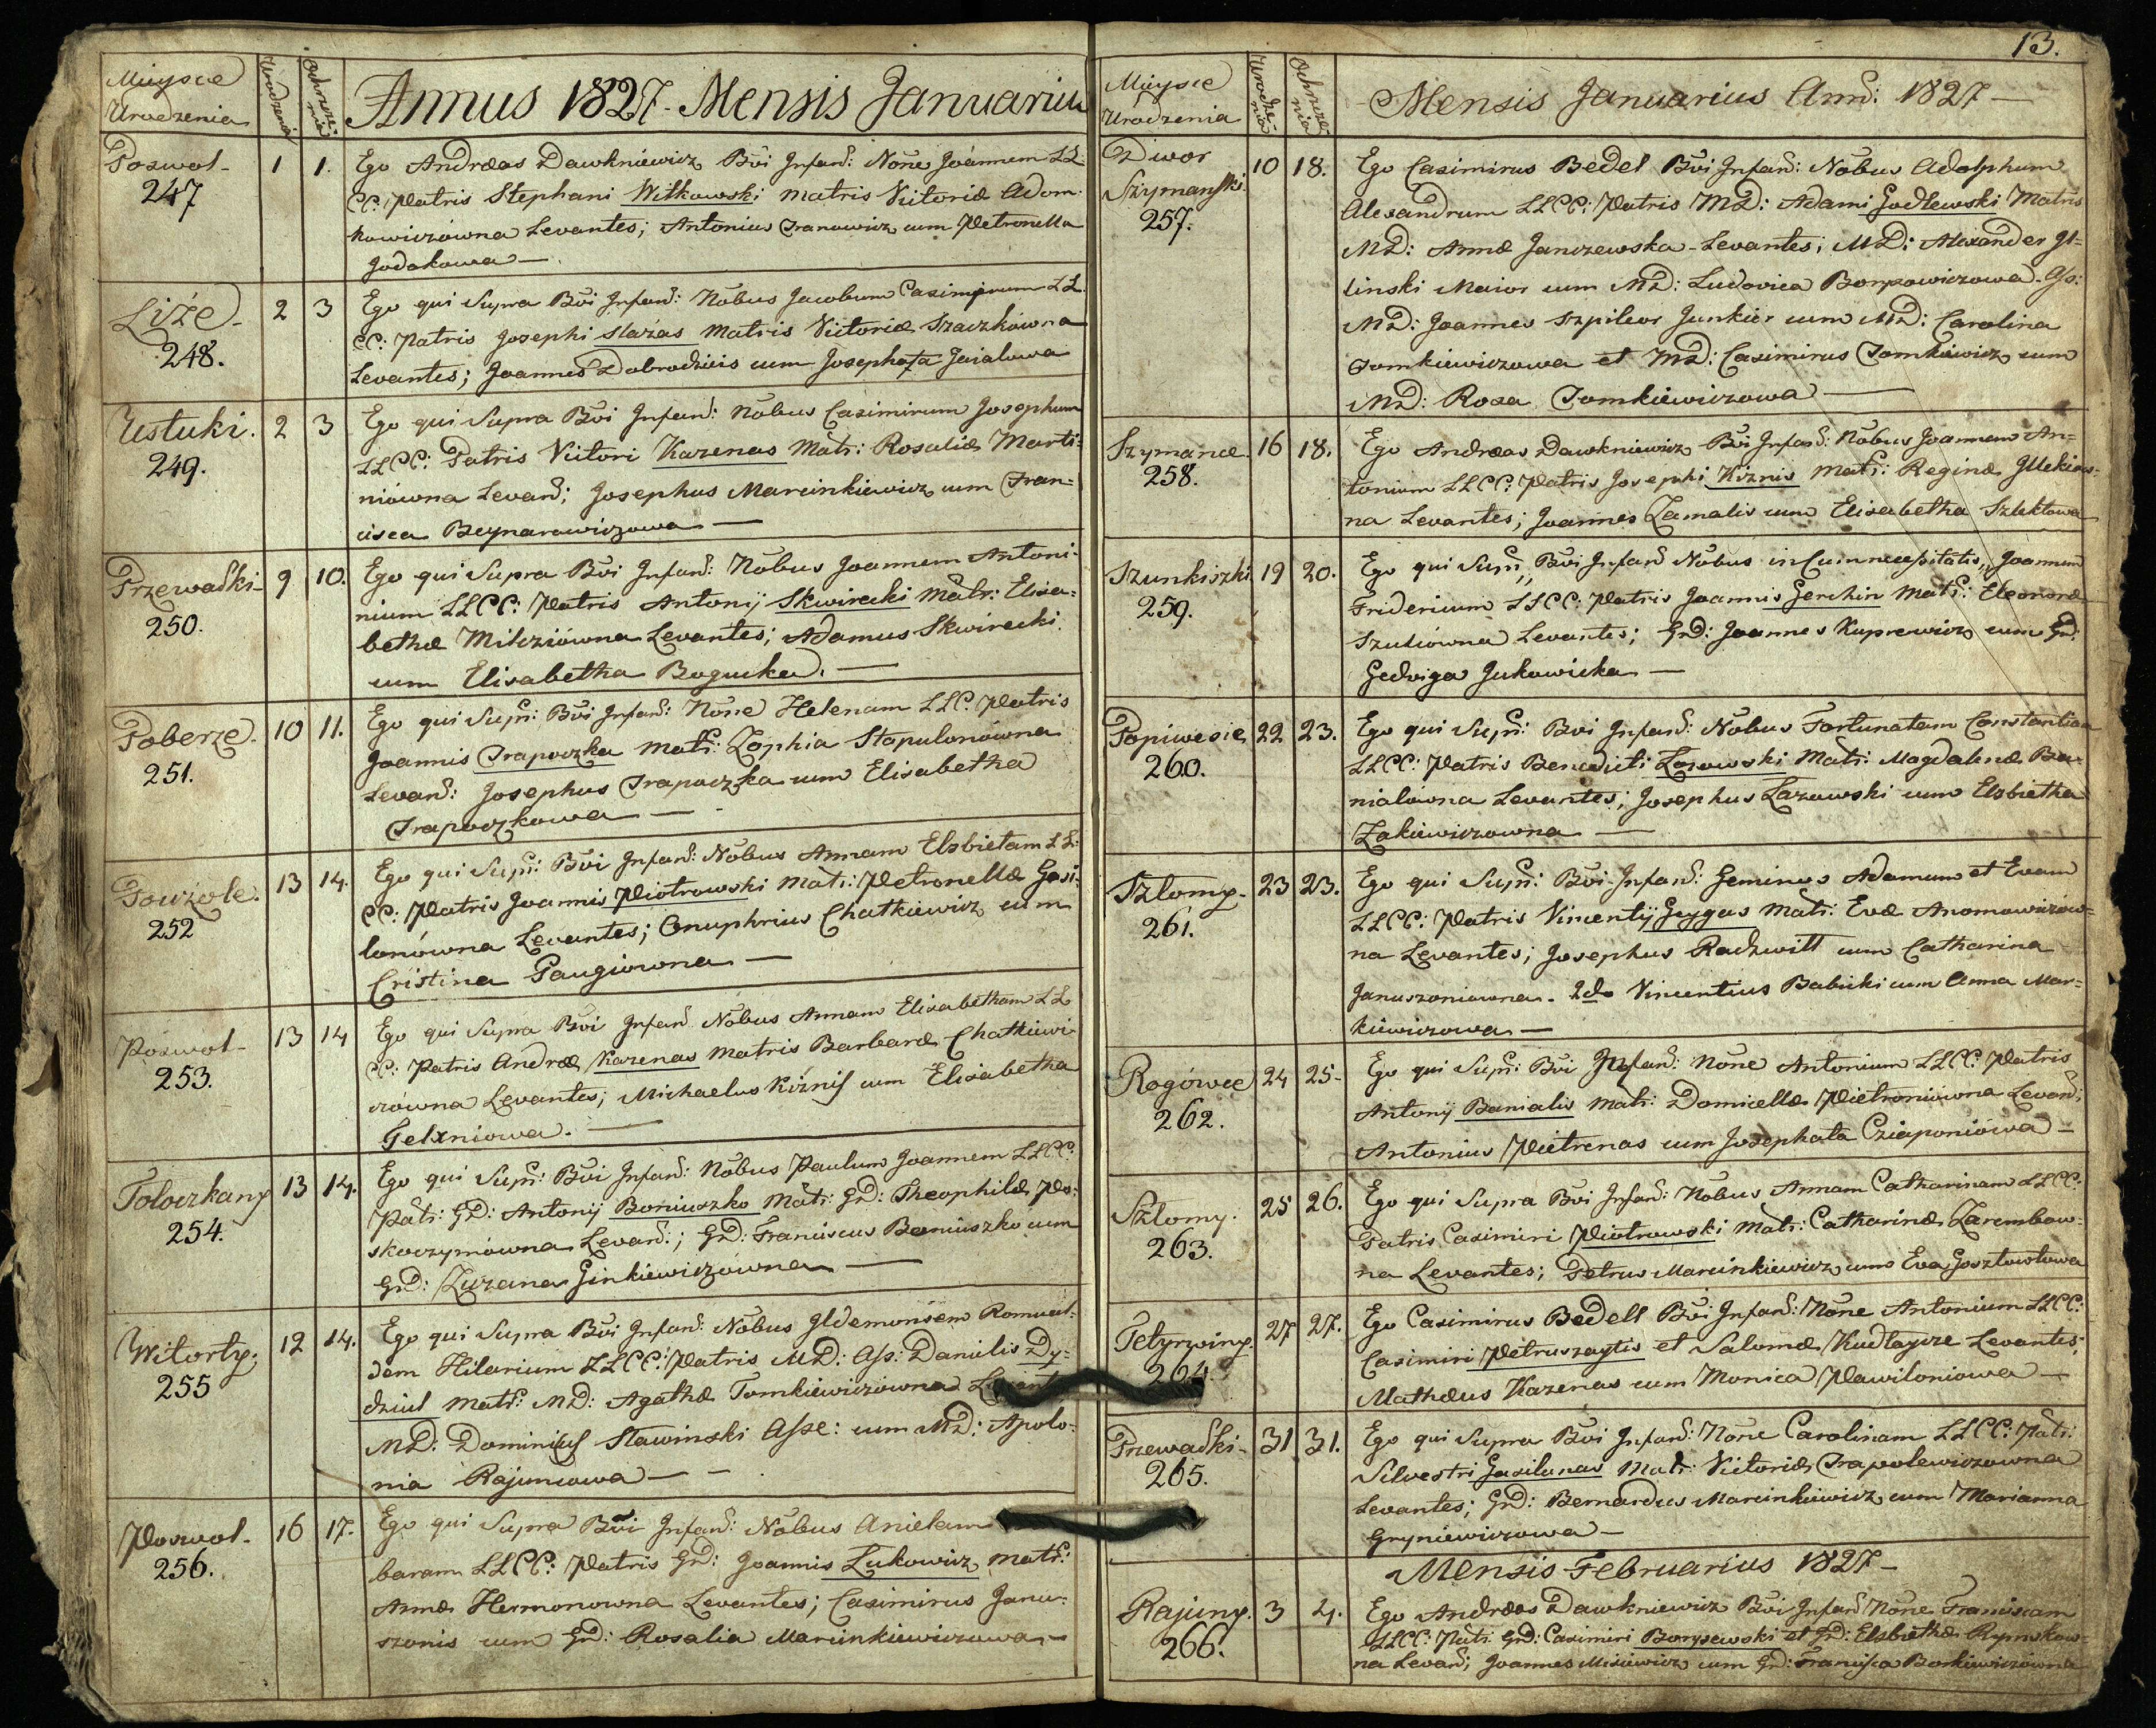 Mieysce
Urodzenia
Urodzenia
Ochrzcze-
nia
Annus 1827. Mensis Januarius
Poswol-
247
1
1.
Ego Andræas Dawkniewicz Bvi Infand: Nõne Joánnem LL
CC: Patris Stephani Witkowski Matris Victoriæ Adom-
kowiczówna Levantes; Antonius Iwanowicz cum Petronella
Godakowa —
Liże-
248.
2
3
Ego qui Supra Bvi Infand: Nõbus Jacobum Casimirum LL
CC: Patris Josephi Slażas Matris Victoriæ Szaczkówna
Levantes; Joannes Dobrodzieis cum Josephata
Ustuki.
249.
2
3
Ego qui Supra Bvi Infand: Nõbus Casimirum Josephum
LLCC: Patris Victori Kazenas Matr: Rosaliæ Marti-
niówna Levand; Josephus Marcinkiewicz cum Fran-
cisca Beynarowiczowa —
Przewadki-
250.
9
10.
Ego qui Supra Bvi Infand: Nõbus Joannem Antoni-
nium LLCC: Patris Antonij Skwirecki Matr: Elisa-
bethæ Milcziówna Levantes; Adamus Skwirecki
cum Elisabetha Bogucka. —
Poberze.
251.
10
11.
Ego qui Supr: Bvi Infand: Nõne Helenam LLC. Patris
Joannis Trapoczka Matr: Zophia Stapulonówna
Levand: Josephus Trapoczka cum Elisabetha
Trapoczkowa —
Powżole.
252
13
14.
Ego qui Supr: Bvi Infand: Nõbus Annam Elsbietam LL
CC: Patris Joannis Piotrowski Matr: Petronellæ Gasi-
lonówna Levantes; Onuphrius Chatkiewicz cum
Cristina Paugiowna —
Poswol-
253.
13
14
Ego qui Supra Bvi Infand Nõbus Annam Elisabetham LL
CC: Patris Andræ Kazenas Matris Barbaræ Chatkiewi-
czówna Levantes; Michaelus Kiżnis cum Elisabetha
Gelzniowa. —
Toloczkany
254.
13
14.
Ego qui Supr: Bvi Infand: Nõbus Paulum Joannem LLCC:
Patr: GD: Antonij Boniuszko Matr: GD: Theophilæ Po-
skoczymówna Levand:; GD: Franciscus Boniuszko cum
GD: Zuzana Ginkiewiczówna —
Witorty;
255
12
14.
Ego qui Supra Bvi Infand: Nõbus Ildemonsem Romual-
dem Hilarium LLCC: Patris MD: Ass: Danielis Dy-
dziul Matr: MD: Agathæ Tomkiewiczówna
MD: Dominius Stawinski Asse: cum MD: Apolo-
nia Rajuncowa — —
Poswol-
256.
16
17.
Ego qui Supra Bvi Infand: Nõbus Anielam
baram LLCC: Patris GD: Joannis Lukowicz Matr:
Annæ Hermonowna Levantes; Casimirus Janu-
szonis cum GD: Rosalia Marcinkiewiczowa —
13.
Mieysce
Urodzenia
Urodze-
nia
Ochrzcze-
nia
Mensis Januarius Annd: 1827 —
Dwor
Szymanski
257.
10
18.
Ego Casimirus Bedel Bvi Infand: Nõbus Adolphum
Alexandrum LLCC: Patris MD: Adami Godlewski Matris
MD: Annæ Janczewska Levantes; MD: Alexander Gl-
linski Maior cum MD: Ludovica Borzowiczowa. As:
MD: Joannes Szpileor Junkier cum MD: Carolina
Tomkiewiczowa et MD: Casimirus Tomkiewicz cum
MD: Rosa Tomkiewiczowa —
Szymańce.
258.
16
18.
Ego Andræas Dawkniewicz Bvi Infand: Nõbus Joannem An-
tonium LLCC: Patris Josephi Kiznis Matr: Reginæ
na Levantes; Joannes Zamalis cum Elisabetha Szlektowa
Szunkiszki
259.
19
20.
Ego qui Supr: Bvi Infand Nõbus in Cum necessitatis, Joannem
Fridericum LLCC: Patris Joannis Gerchin Matr: Eleonoræ
Szuliówna Levantes; GD: Joannes Kuprewicz cum GD:
Gedviga Jukowicka —
Popiwesie
260.
22
23.
Ego qui Supr: Bvi Infand: Nõbus Fortunatam Constantiam
LLCC: Patris Benedicti Lazowski Matr: Magdalenæ Ba-
nialówna Levantes; Josephus Lazowski cum Elsbietha
Zakiewiczowna —
Szlomy.
261.
23
23.
Ego qui Supr: Bvi Infand: Geminos Adamum et Evam
LLCC: Patris Vincentij Grygas Matr: Evæ Anomowiczów-
na Levantes; Josephus Radzwill cum Catharina
Januszoniowna. 2do Vincentius Babicki cum Anna Mar-
kiewiczowa —
Rogówce
262.
24
25-
Ego qui Supr: Bvi Infand: Nõne Antonium LLCC: Patris
Antonij Banialis Matr: Domicellæ Pietroniówna Levand;
Antonius Pietrenas cum Josephata Cziaponiówa —
Szlomy.
263.
25
26.
Ego qui Supra Bvi Infand: Nõbus Annam Catharinam LLCC:
Patris Casimiri Piotrowski Matr: Catharinæ Zarembow-
na Levantes; Petrus Marcinkiewicz cum Eva Gosztowtowa
Tetyrwiny.
264
27
27.
Ego Casimirus Bedell Bvi Infand: Nõne Antonium LLCC:
Casimiri Petruszaytis et Salomeæ Kudlaycze Levantes;
Mathæus Kazenas cum Monica Pawiloniowa —
Przewadki-
265.
31
31.
Ego qui Supra Bvi Infand: Nõne Carolinam LLCC: Patr:
Silvestri Gasilunas Matr: Victoriæ Trapolewiczowna
Levantes; GD: Bernardus Marcinkiewicz cum Marianna
Gryniewiczowa —
Mensis Februarius 1827 —
Rajuny.
266.
3
4.
Ego Andræas Dawkniewicz Bvi Infand Nõne Franciscam
LLCC: Patri GD: Casimiri Borysewski et GD: Elsbiethæ Rymkow-
na Levand; Joannes Misiewicz cum GD: Francisca Borkiewiczówna